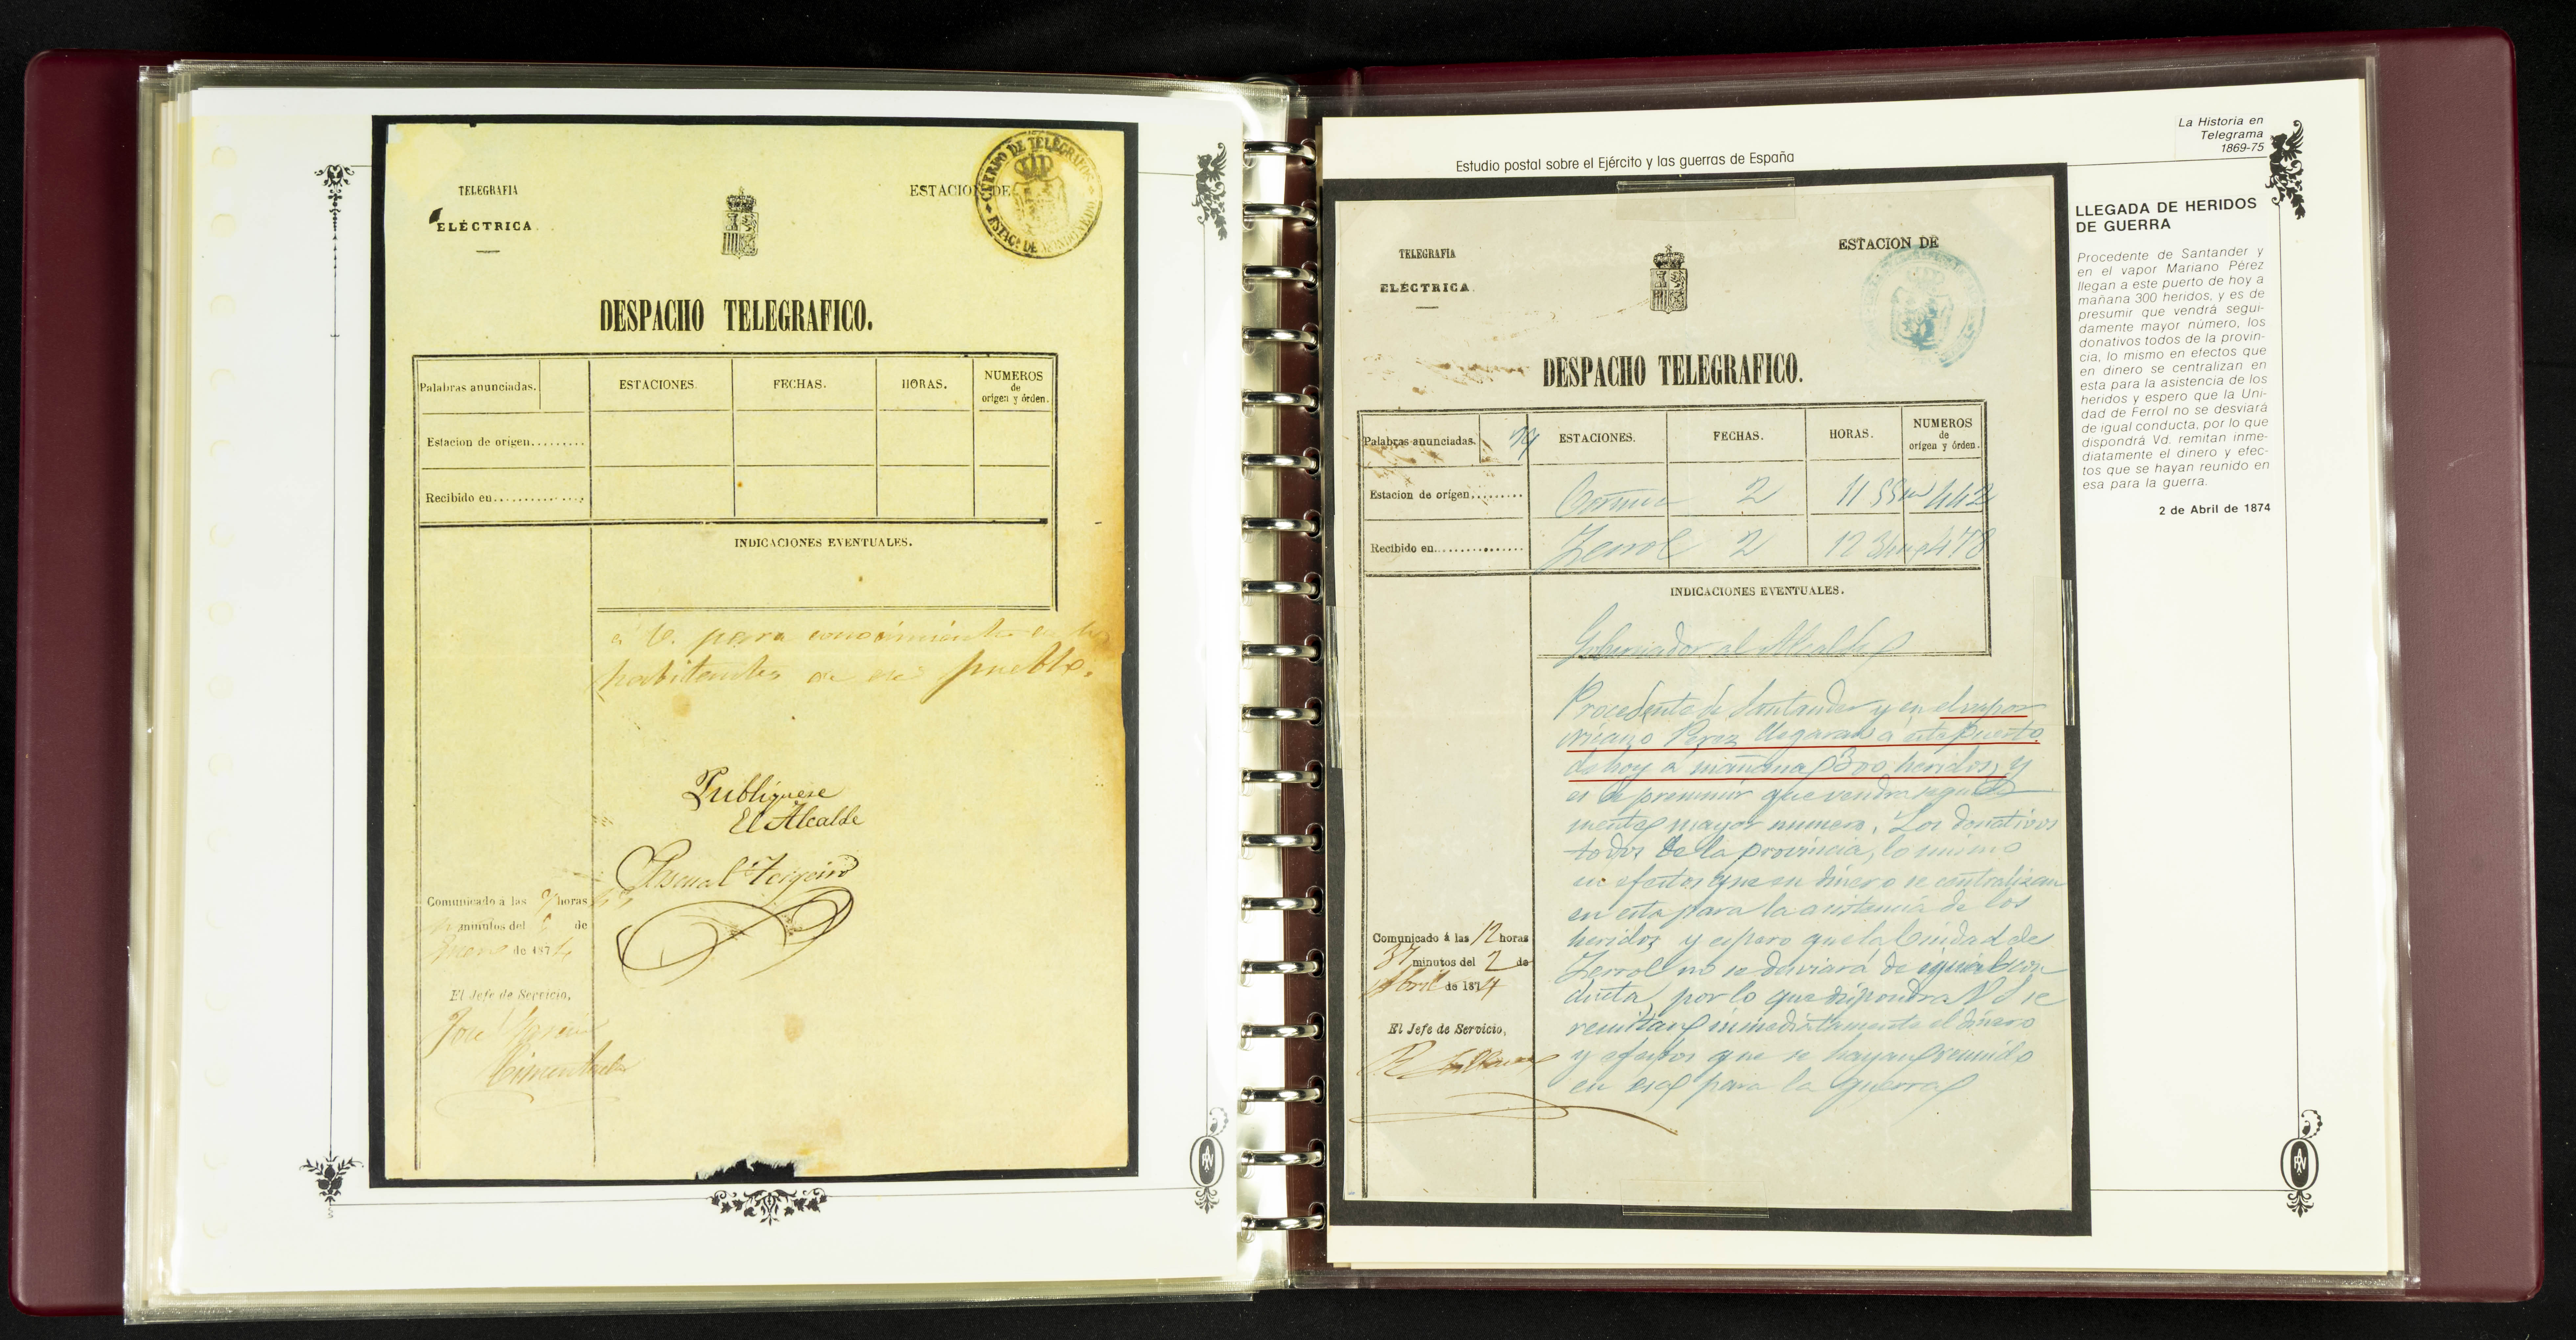 TELEGRAFIA
ELÉCTRICA.
ESTACION DE
CUERPO DE TELEGRAFOS
ESTACN DE MONDOÑEDO
DESPACHO TELEGRAFICO.
Palabras anunciadas. ESTACIONES. FECHAS. HORAS. NUMEROS
de
orígen y órden.
Estacion de orígen.........
Recibido en...............
INDICACIONES EVENTUALES.
á V. para conocimiento de los
habitantes de ese pueblo.
Publíquese
El Alcalde
Pascual Teijeiro
Comunicado á las 9 horas
minutos del de
Enero de 1874
El Jefe de Servicio,
José
La Historia en
Telegrama
1869-75
Estudio postal sobre el Ejército y las guerras de España
TELEGRAFIA
ELÉCTRICA.
ESTACION DE
DESPACHO TELEGRAFICO.
Palabras anunciadas. ESTACIONES. FECHAS. HORAS. NUMEROS
de
orígen y órden.
Estacion de orígen......... Coruña 2 11 55 m 442
Recibido en............... Ferrol 2 12 478
INDICACIONES EVENTUALES.
Gobernador al Alcalde
Procedente de Santander y en el vapor
Mariano Perez llegaran á este puerto
de hoy á mañana 300 heridos, y
es de presumir que vendra seguida
mente mayor numero, Los donativos
todos de la provincia, lo mismo
en efectos que en dinero se centralizan
en esta para la asistencia de los
heridos y espero que la Ciudad de
Ferrol no se desviará de igual con
ducta, por lo que dispondra Vd se
remitan inmediatamente el dinero
y efectos que se hayan reunido
en esa para la guerra
Comunicado á las 12 horas
37 minutos del 2 de
Abril de 1874
El Jefe de Servicio,
LLEGADA DE HERIDOS
DE GUERRA
Procedente de Santander y
en el vapor Mariano Pérez
llegan a este puerto de hoy a
mañana 300 heridos, y es de
presumir que vendrá segui-
damente mayor número, los
donativos todos de la provin-
cia, lo mismo en efectos que
en dinero se centralizan en
esta para la asistencia de los
heridos y espero que la Uni-
dad de Ferrol no se desviará
de igual conducta, por lo que
dispondrá Vd. remitan inme-
diatamente el dinero y efec-
tos que se hayan reunido en
esa para la guerra.
2 de Abril de 1874